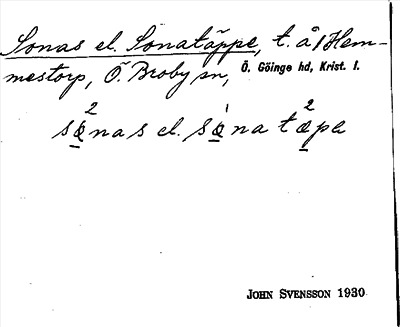 Sonas el. Sonatäppe, t. å 1 Hem-
mestorp, Ö. Broby sn, Ö. Göinge hd, Krist. l.
sɷ̲²nas el. sɷ̲¹na tæ̲²pe
JOHN SVENSSON 1930